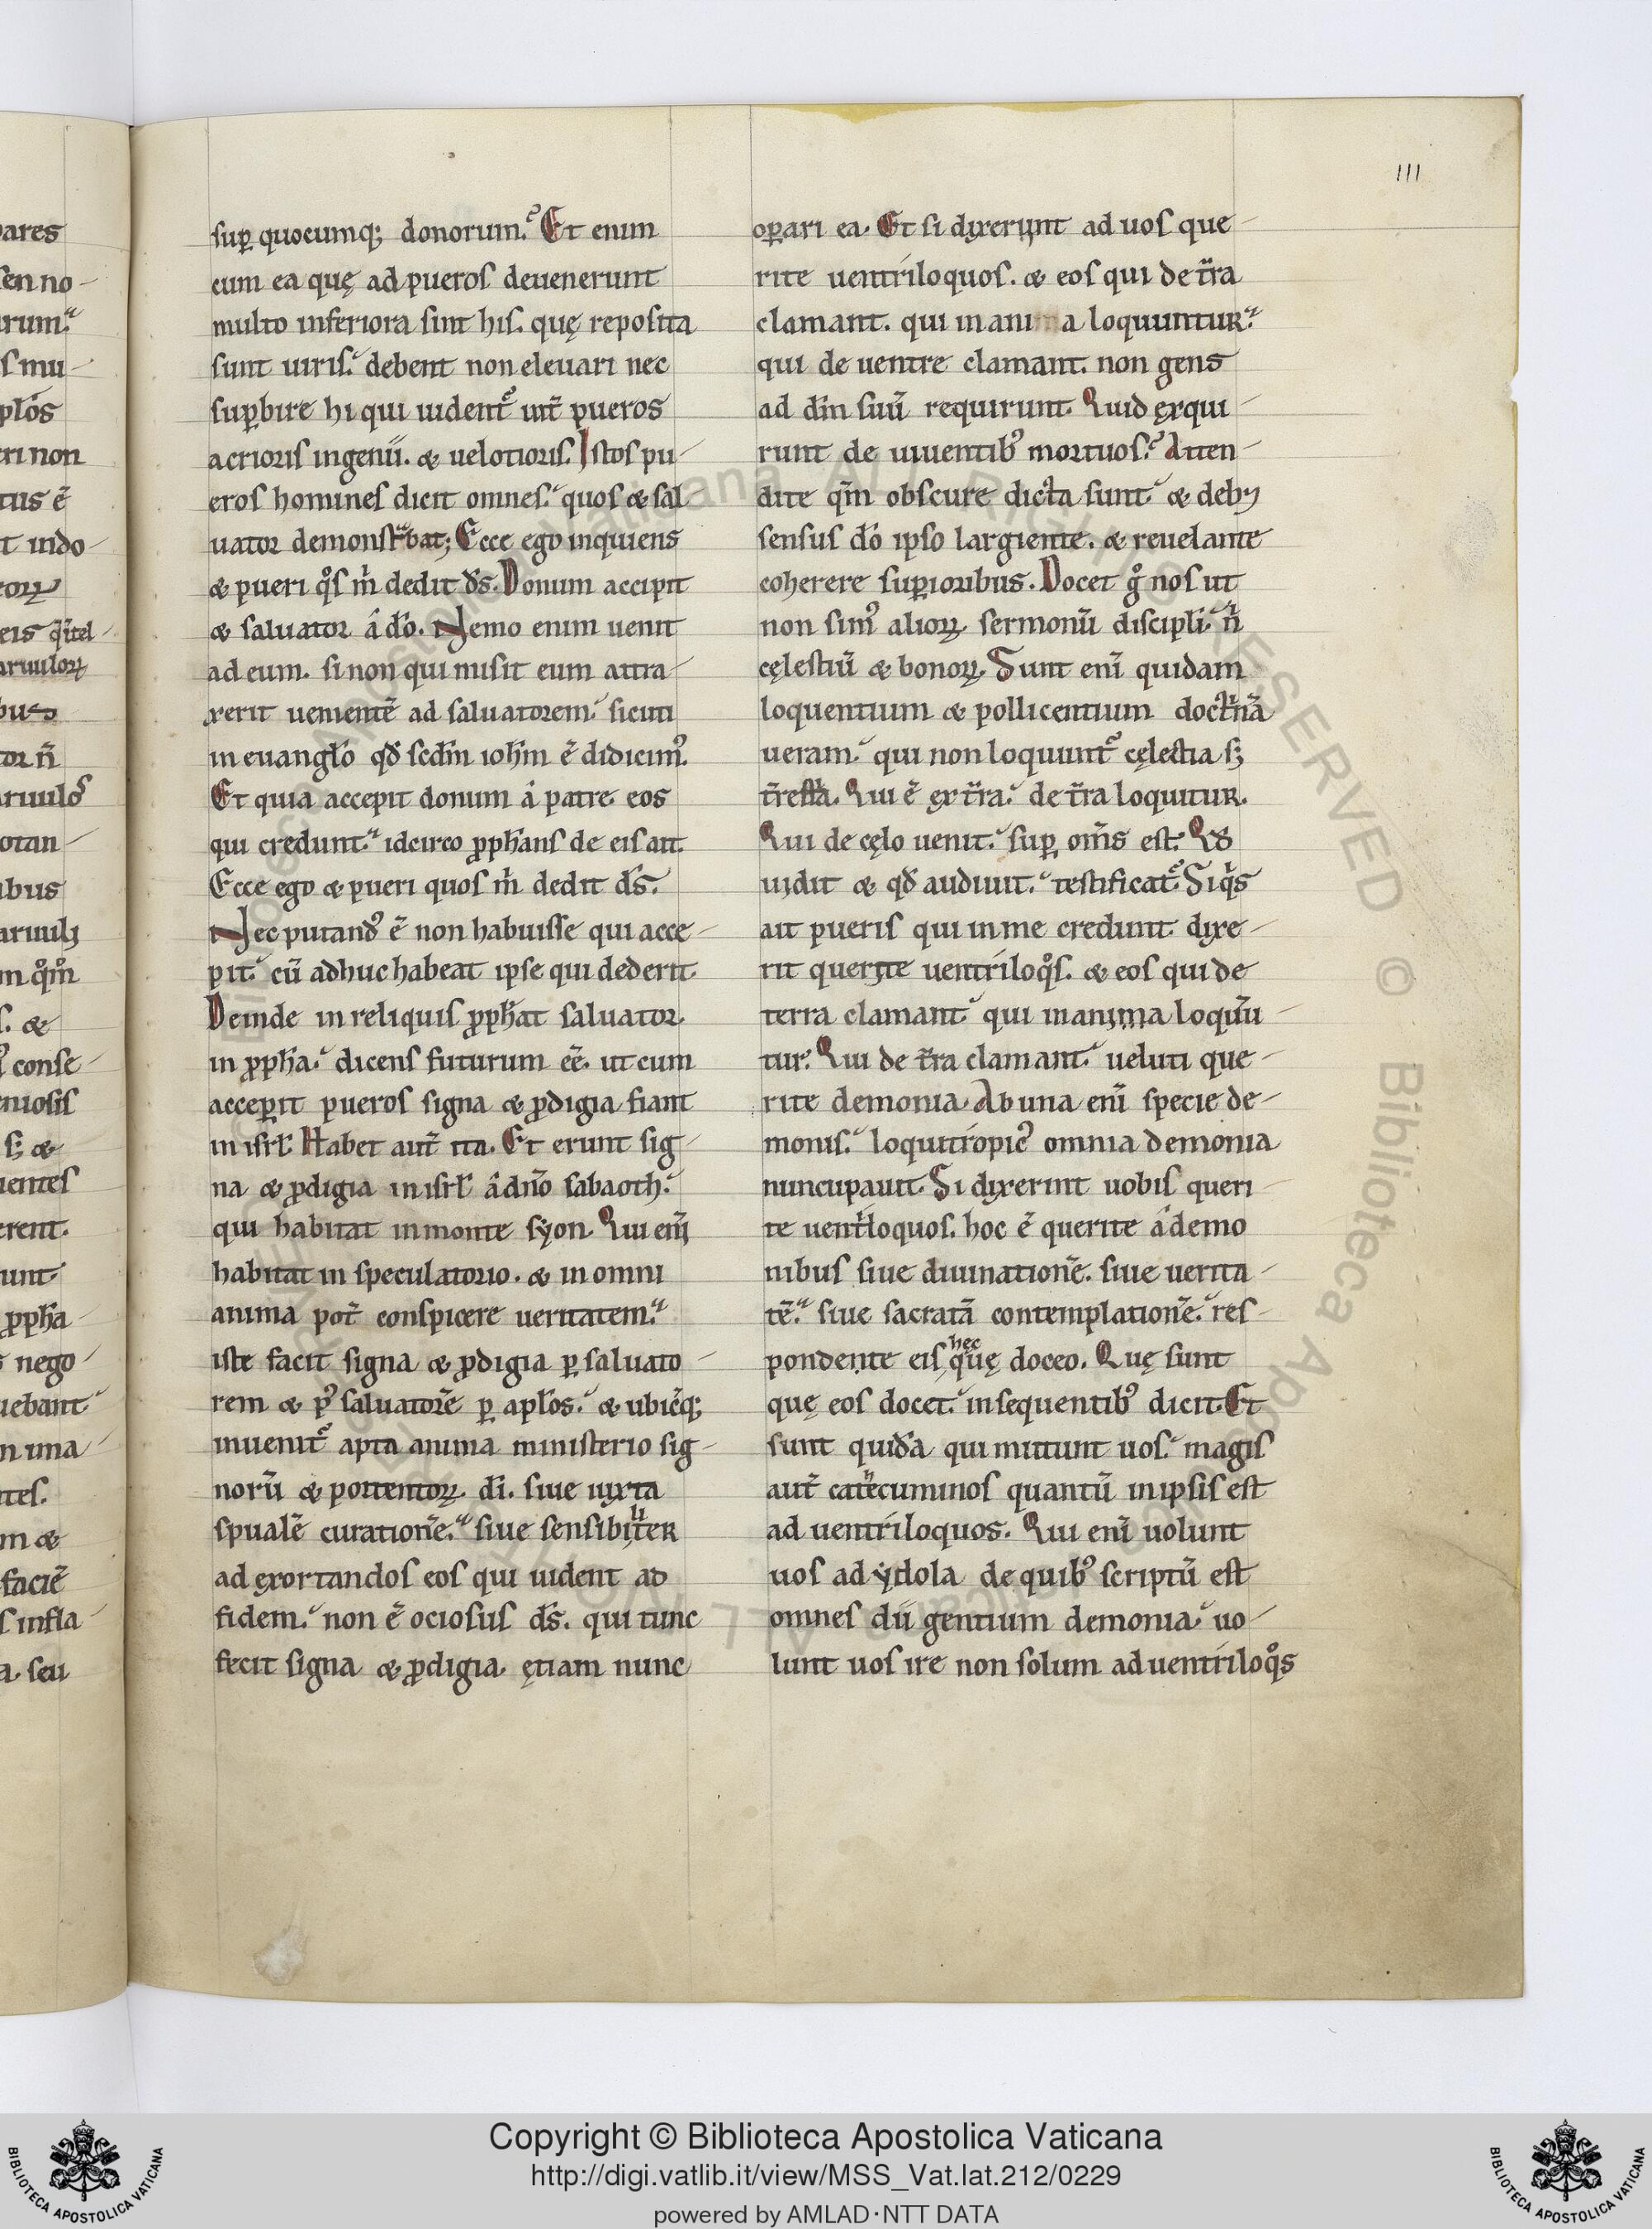 111
sup quocumq; donorum. Et enim
cum ea quę ad pueros deuenerunt
multo inferiora sint his. quę reposita
sunt uiris. debent non eleuari nec
supbire hi qui uident᷑ int̃ pueros
acrioris ingenii. & uelotioris. Istos pu-
eros homines dicit omnes. quos & sal-
uator demonstᷓbat; Ecce ego inquiens
& pueri qͦs m̃ dedit ds̃. Donum accipit
& saluator a do̅. Nemo enim uenit
ad eum. si non qui misit eum attra-
xerit uementẽ ad saluatorem. sicuti
in euanglo̅ qd̃ scdm̃ ioh̅m ẽ didicim᷒.
Et quia accepit donum a patre. eos
qui credunt. idcirco ꝓph̅ans de eis ait.
Ecce ego & pueri quos m̃ dedit ds̃.
Nec putand᷒ ẽ non habuisse qui acce-
pit. cũ adhuc habeat ipse qui dederit.
Deinde in reliquis ꝓph̅at saluator.
in ꝓph̅a. dicens futurum eẽ. ut cum
acceꝑit pueros signa & ꝓdigia fiant
in isrl̅. Habet aut̃ ita. Et erunt sig-
na & ꝓdigia in isrl̅ a dño sabaoth.
qui habitat in monte syon. Qui enĩ
habitat in speculatorio. & in omni
anima pot̃ conspicere ueritatem.
iste facit signa & ꝓdigia ꝑ saluato-
rem & p᷒ saluatorẽ ꝑ apl̅os. & ubicq̃;
inuenit᷑ apta anima ministerio sig-
norũ & portentoꝝ. di̅. siue iuxta
spualẽ curationẽ. siue sensibilit̃ER
ad exortandos eos qui uident ad
fidem. non ẽ ociosus ds̃. qui tunc
fecit signa & ꝓdigia. ętiam nunc
oꝑari ea. Et si dixerunt ad uos que-
rite uentriloquos. & eos qui de tr̃a
clamant. qui in ani a loquuntur.
qui de uentre clamant. non gens
ad dm̃ suũ requirunt. Quid exqui-
runt de uiuentib᷒ mortuos. Atten-
dite qm̃ obscure dicta sunt. & debꝫ
sensus do̅ ipso largiente. & reuelante
coherere suꝑioribus. Docet gͦ nos ut
non sim᷒ alioꝝ sermonũ discipli. ñ
cęlestiũ & bonoꝝ. Sunt enĩ quidam
loquentium & pollicentium doctⁱnã
ueram. qui non loquunt᷑ cęlestia sꝫ
tr̃estⁱa. Qui ẽ ex tr̃a. de tr̃a loquitur.
Qui de cęlo uenit. suꝑ om̃s est. Qd̃
uidit & qd̃ audiuit. testificat᷑. Si qⁱs
ait pueris qui in me credunt. dixe-
rit querite uentriloqͦs. & eos qui de
terra clamant. qui in anima loquũ
tur. Qui de tr̃a clamant. ueluti que-
rite demonia. Ab una enĩ specie de-
monis. loquitropic᷒ omnia demonia
nuncupauit. Si dixerint uobis queri-
te uentⁱloquos. hoc ẽ querite a demo
nibus siue diuinationẽ. siue uerita-
tẽ. siue sacratã contemplationẽ. res-
pondente eis hec quę doceo. Quę sunt
quę eos docet. in sequentib᷒ dicit. Et
sunt quidã qui mittunt uos. magis
aut̃ catecuminos quantũ in ipsis est
ad uentriloquos. Qui enĩ uolunt
uos ad ydola de quib᷒ scriptũ est
omnes dii gentium demonia. uo-
lunt uos ire non solum ad uentriloqͦs
Copyright © Biblioteca Apostolica Vaticana
http://digi.vatlib.it/view/MSS_Vat.lat.212/0229
powered by AMLAD·NTT DATA
BIBLIOTECA APOSTOLICA VATICANA
BIBLIOTECA APOSTOLICA VATICANA